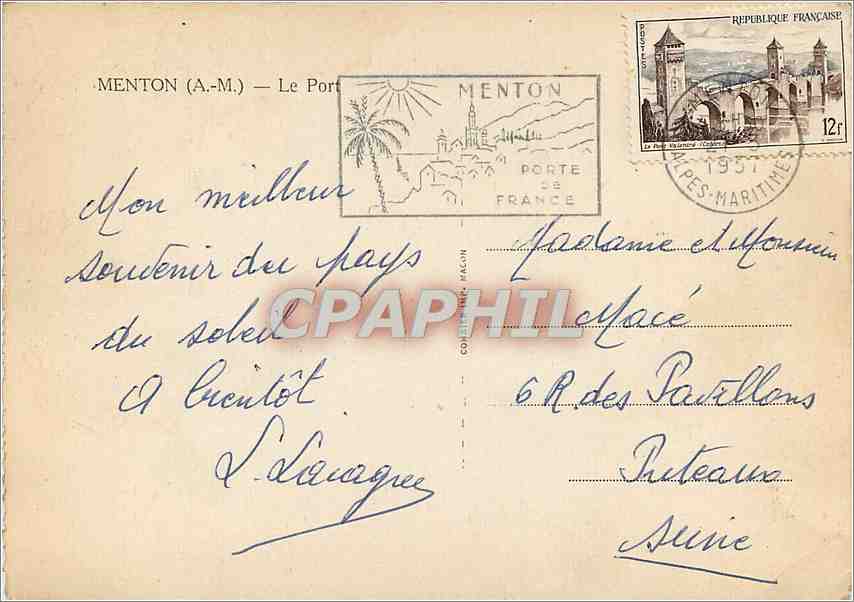 MENTON (A.-M.) — Le Port
MENTON
PORTE
DE
FRANCE
REPUBLIQUE FRANÇAISE
POSTES
12F
Le Pont Valentré (Cahors)
1957
ALPES-MARITIMES
Mon meilleur
souvenir du pays
du soleil
A bientôt
COMBIER IMP. MACON
CPAPHIL
Madame et Monsieur
Macé
6 R. des Pavillons
Puteaux
Seine